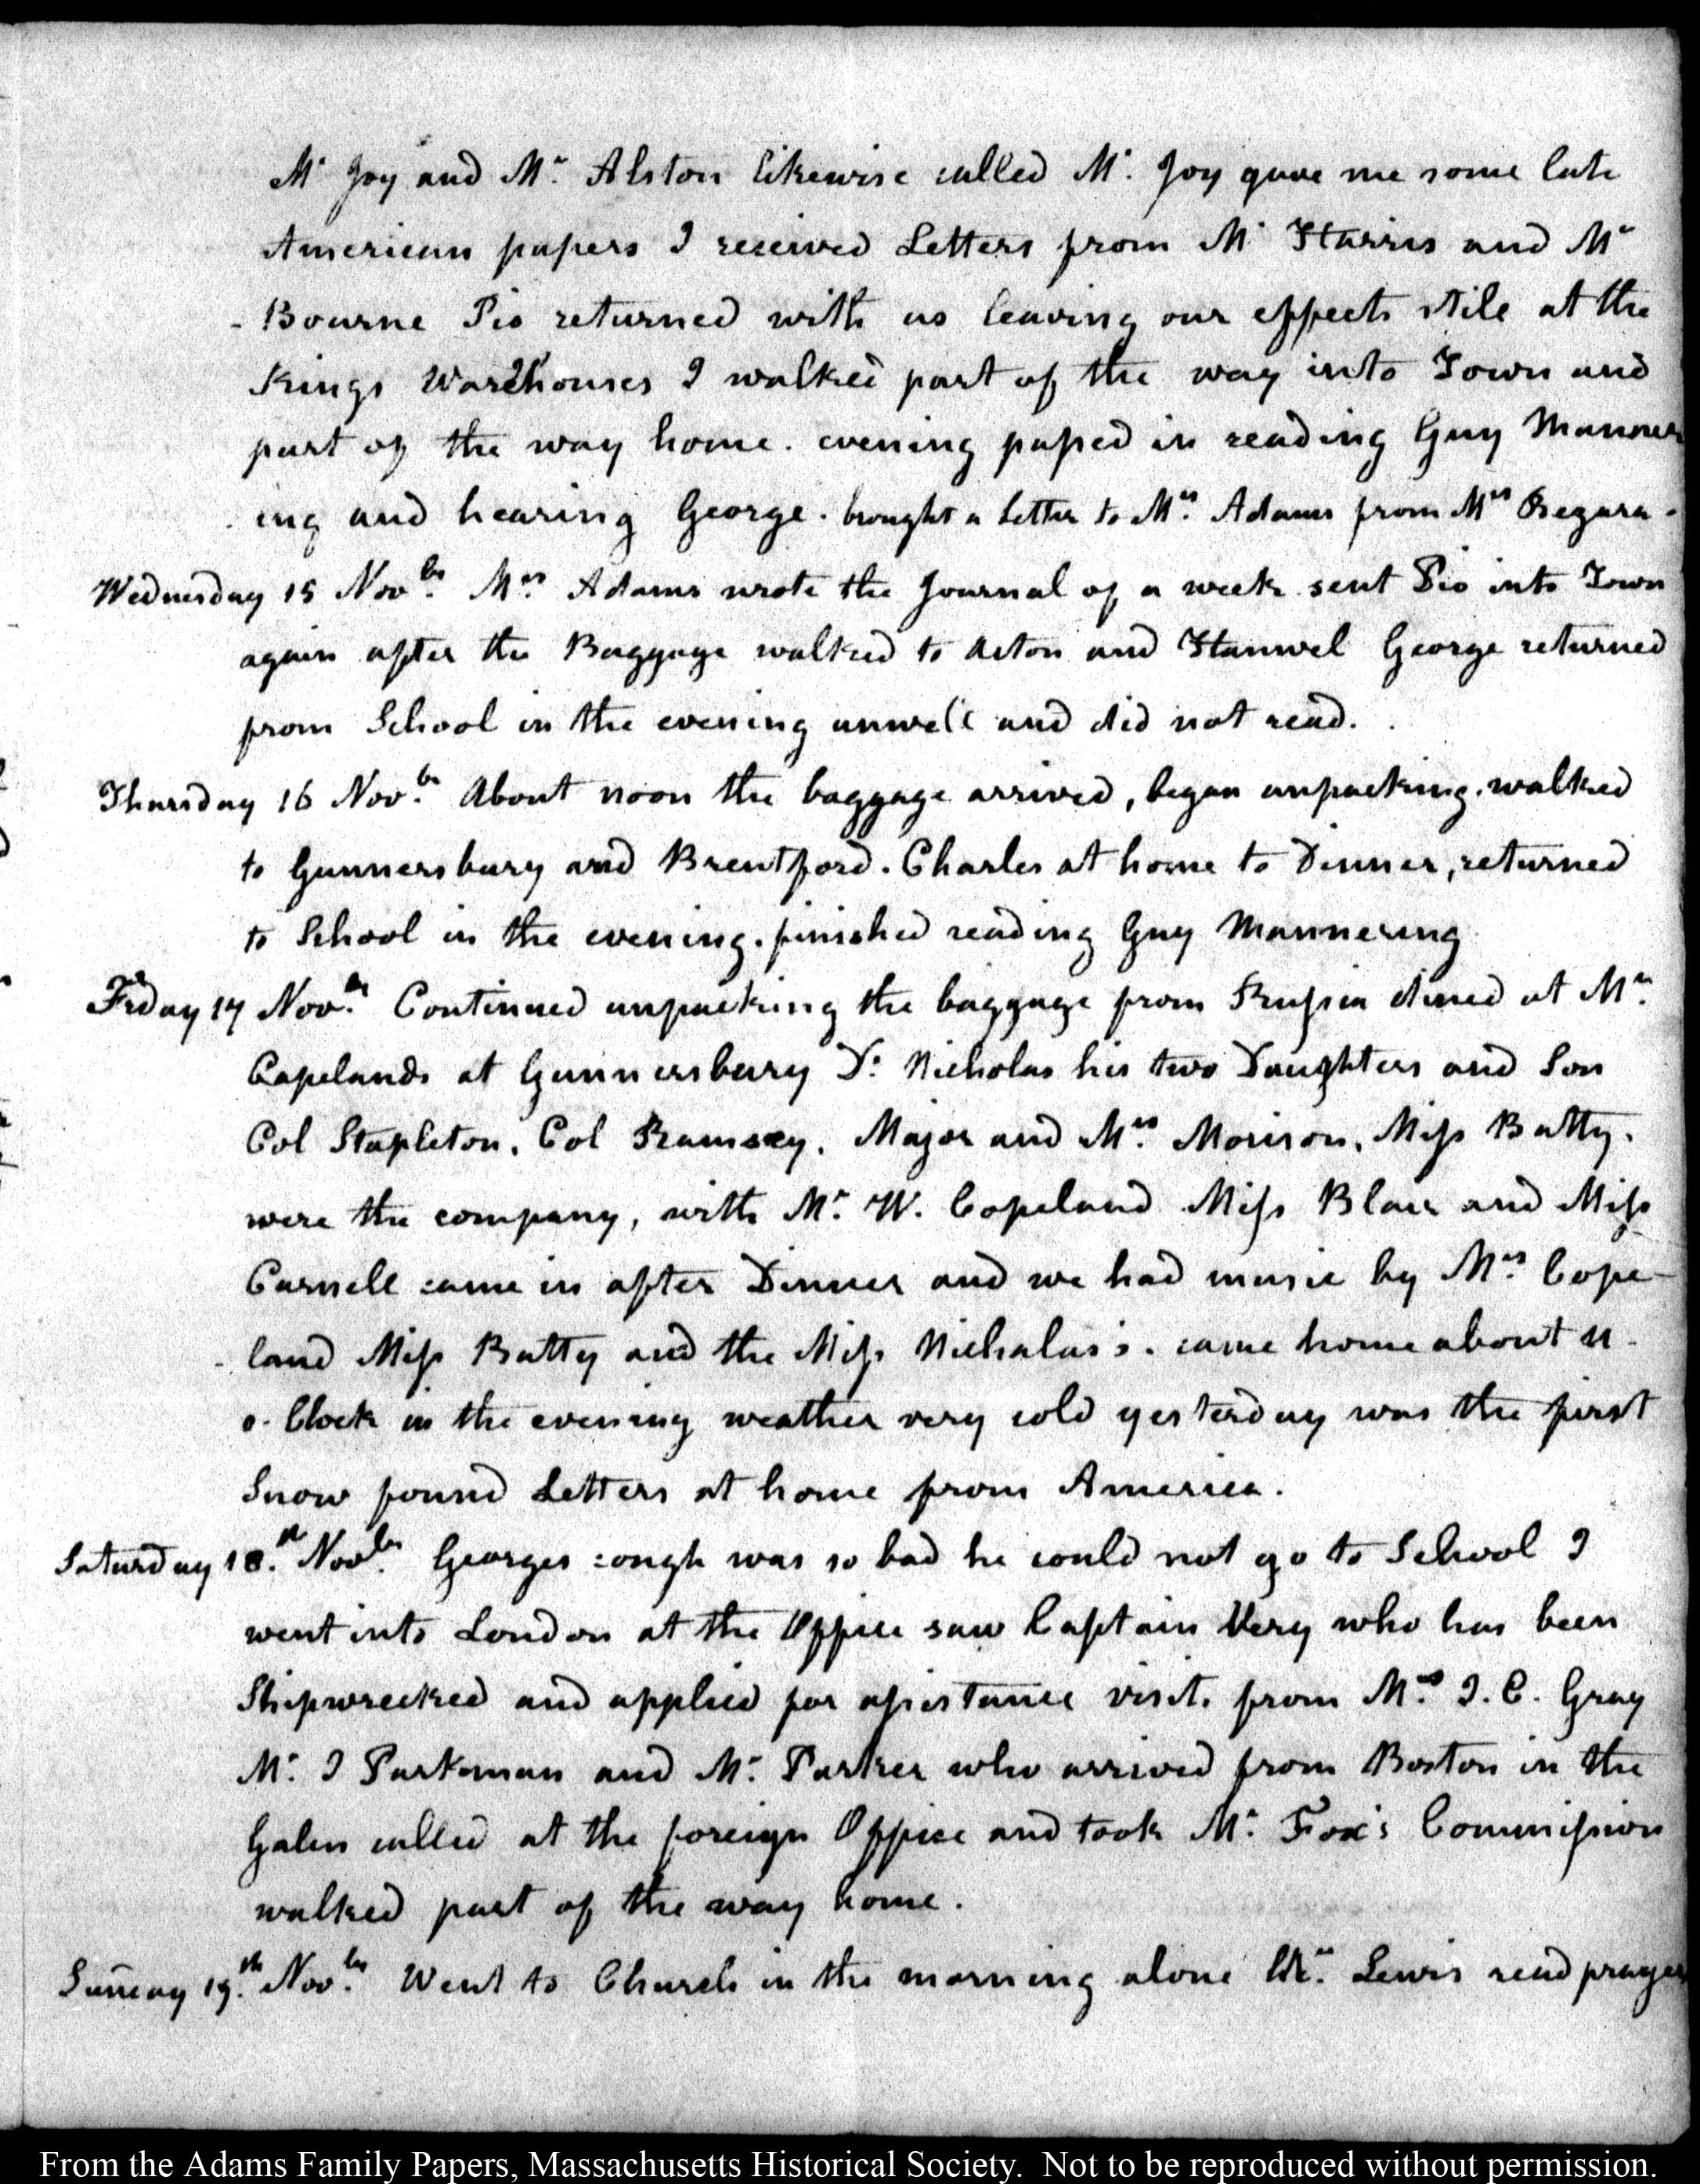 Mr Joy and Mr. Alston likewise called Mr. Joy gave me some late
American papers I received Letters from Mr Harris and Mr
Bourne Pio returned with us leaving our effects stile at the
Kings Warehouses I walked part of the way into Town and
part of the way home. evening passed in reading Guy Manner
ing and hearing George. brought a Letter to Mrs. Adams from Mrs
Wednesday 15 Novbr. Mrs. Adams wrote the Journal of a week sent Pio into Town
again after the Baggage walked to Acton and Hanwel George returned
from School in the evening unwell and did not read.
Thursday 16 Novbr. About noon the baggage arrived, began unpacking. walked
to Gunnersbury and Brentford. Charles at home to Dinner, returned
to School in the evening. finished reading Guy Mannering
Friday 17 Novbr. Continued unpacking the baggage from Russia dined at Mr.
Copelands at Gunnersbury Dr. Nicholas his two Daughters and Son
Col Stapleton, Col Ramsey, Major and Mrs. Morison, Miss Batty.
were the company, with Mr. W. Copeland Miss Blair and Miss
Carnell came in after Dinner and we had music by Mrs. Cope-
land Miss Batty and the Miss Nicholas's. came home about 11
o. Clock in the evening weather very cold yesterday was the first
Snow found Letters at home from America.
Saturday 18.th Novbr. Georges cough was so bad he could not go to School I
went into London at the Office saw Captain Very who has been
Shipwrecked and applied for assistance visits from Mr. J. C. Gray
Mr. J Parkman and Mr. Parker who arrived from Boston in the
Galen called at the foreign Office and took Mr. Fox's Commission
walked part of the way home.
Sunday 19.th Novbr. Went to Church in the morning alone Mr. Lewis read prayers
From the Adams Family Papers, Massachusetts Historical Society. Not to be reproduced without permission.